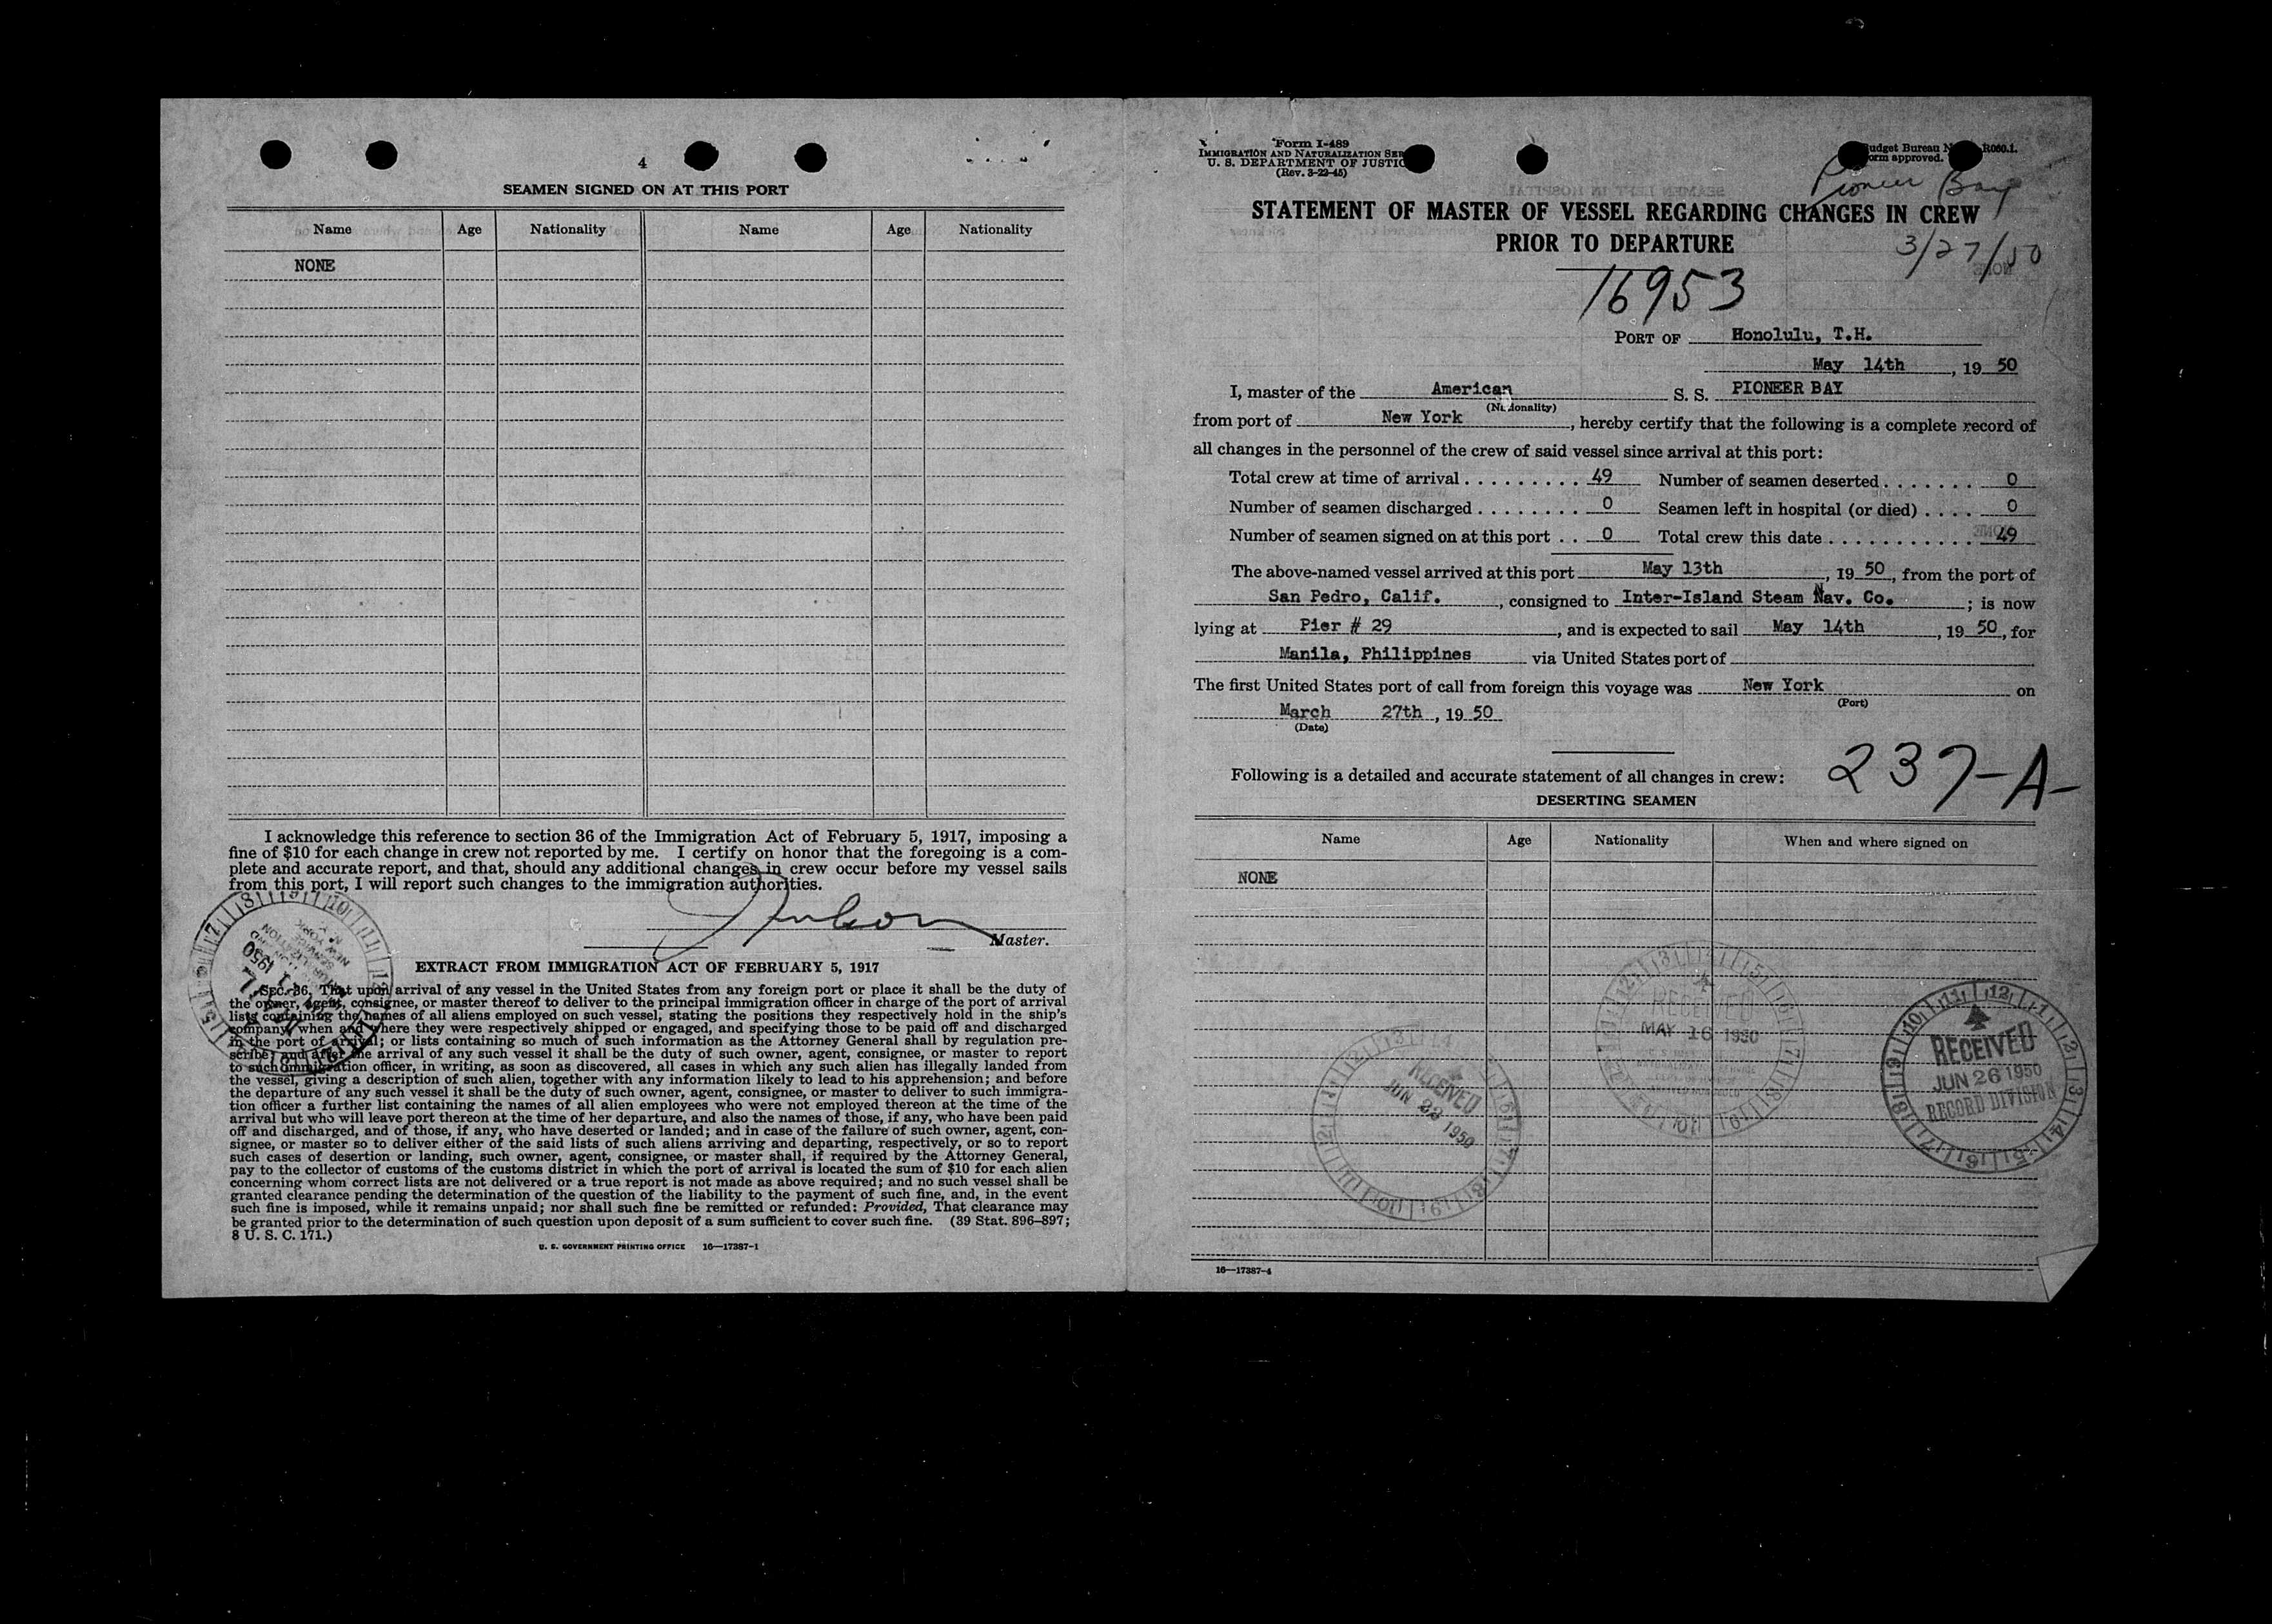 4
SEAMEN SIGNED ON AT THIS PORT
Name Age Nationality Name Age Nationality
NONE
I acknowledge this reference to section 36 of the Immigration Act of February 5, 1917, imposing a
fine of $10 for each change in crew not reported by me. I certify on honor that the foregoing is a com-
plete and accurate report, and that, should any additional changes in crew occur before my vessel sails
from this port, I will report such changes to the immigration authorities.
Master.
EXTRACT FROM IMMIGRATION ACT OF FEBRUARY 5, 1917
SEC. 36. That upon arrival of any vessel in the United States from any foreign port or place it shall be the duty of
the owner, agent, consignee, or master thereof to deliver to the principal immigration officer in charge of the port of arrival
lists containing the names of all aliens employed on such vessel, stating the positions they respectively hold in the ship's
company, when and where they were respectively shipped or engaged, and specifying those to be paid off and discharged
in the port of arrival; or lists containing so much of such information as the Attorney General shall by regulation pre-
scribe; and after the arrival of any such vessel it shall be the duty of such owner, agent, consignee, or master to report
to such immigration officer, in writing, as soon as discovered, all cases in which any such alien has illegally landed from
the vessel, giving a description of such alien, together with any information likely to lead to his apprehension; and before
the departure of any such vessel it shall be the duty of such owner, agent, consignee, or master to deliver to such immigra-
tion officer a further list containing the names of all alien employees who were not employed thereon at the time of the
arrival but who will leave port thereon at the time of her departure, and also the names of those, if any, who have been paid
off and discharged, and of those, if any, who have deserted or landed; and in case of the failure of such owner, agent, con-
signee, or master so to deliver either of the said lists of such aliens arriving and departing, respectively, or so to report
such cases of desertion or landing, such owner, agent, consignee, or master shall, if required by the Attorney General,
pay to the collector of customs of the customs district in which the port of arrival is located the sum of $10 for each alien
concerning whom correct lists are not delivered or a true report is not made as above required; and no such vessel shall be
granted clearance pending the determination of the question of the liability to the payment of such fine, and, in the event
such fine is imposed, while it remains unpaid; nor shall such fine be remitted or refunded: Provided, That clearance may
be granted prior to the determination of such question upon deposit of a sum sufficient to cover such fine. (39 Stat. 896-897;
8 U. S. C. 171.)
U. S. GOVERNMENT PRINTING OFFICE 16—17387-1
Form I-489
IMMIGRATION AND NATURALIZATION SER
U. S. DEPARTMENT OF JUSTIC
(Rev. 3-22-45)
udget Bureau N R060.1.
orm approved.
Pioneer Bay
STATEMENT OF MASTER OF VESSEL REGARDING CHANGES IN CREW
PRIOR TO DEPARTURE
3/27/50
16953
PORT OF Honolulu, T.H.
May 14th, 19 50
I, master of the American S. S. PIONEER BAY
(Nationality)
from port of New York, hereby certify that the following is a complete record of
all changes in the personnel of the crew of said vessel since arrival at this port:
Total crew at time of arrival . . . . . . . . . 49 Number of seamen deserted . . . . . . . 0
Number of seamen discharged . . . . . . . . 0 Seamen left in hospital (or died) . . . . 0
Number of seamen signed on at this port . . 0 Total crew this date . . . . . . . . . . . 49
The above-named vessel arrived at this port May 13th, 19 50, from the port of
San Pedro, Calif., consigned to Inter-Island Steam Nav. Co.; is now
lying at Pier # 29, and is expected to sail May 14th, 19 50, for
Manila, Philippines via United States port of
The first United States port of call from foreign this voyage was New York on
(Port)
March 27th, 19 50
(Date)
Following is a detailed and accurate statement of all changes in crew:
237-A-
DESERTING SEAMEN
Name Age Nationality When and where signed on
NONE
RECEIVED
MAY 16 1950
RECEIVED
JUN 26 1950
RECORD DIVISION
RECEIVED
JUN 1950
16—17387-4